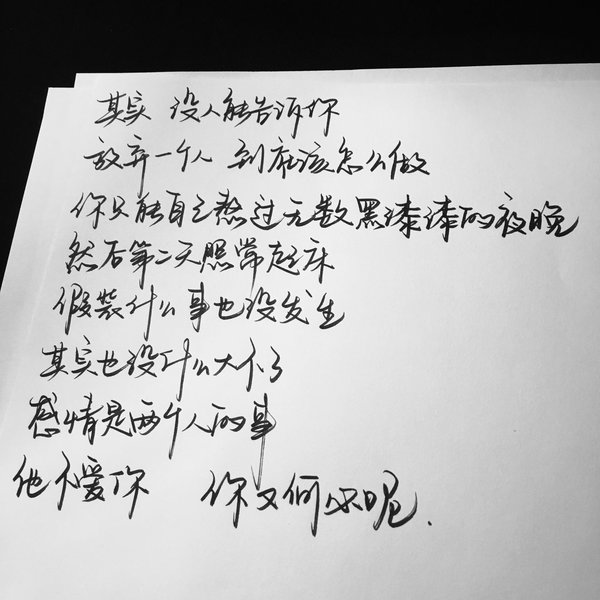 其实 没人能告诉你
放弃一个人 到底该怎么做
你只能自己熬过无数黑漆漆的夜晚
然后第二天照常起床
假装什么事也没发生
其实也没什么大不了
感情是两个人的事
他不爱你 你又何必呢.